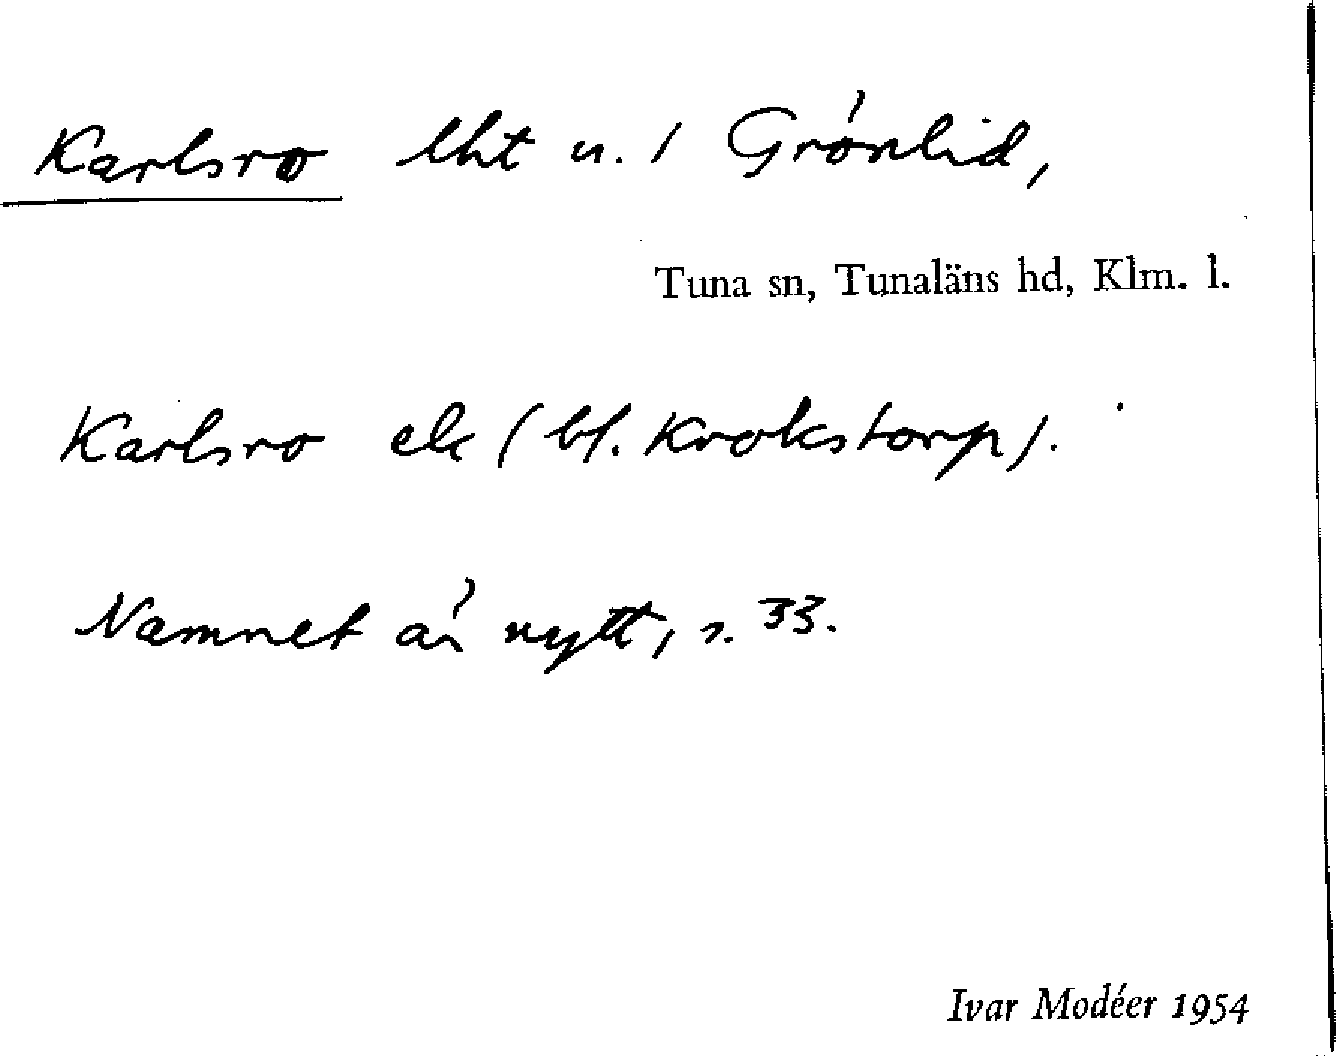 Karlsro lht u. / Grönlid,
Tuna sn, Tunaläns hd, Klm. l.
Karlsro ek (bl. Krokstorp).
Namnet är nytt, s. 33.
Ivar Modéer 1954